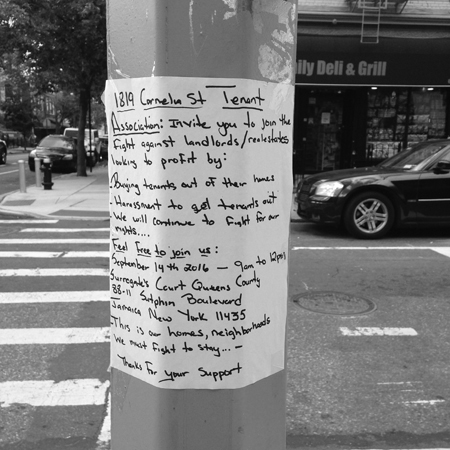 ily Deli & Grill
1819 Cornelia St Tenant
Association: Invite you to join the
fight against landlords/realestates
looking to profit by:
- Buying tenants out of their homes
- Haressment to get tenants out
- We will continue to fight for our
rights....
Feel free to join us:
September 14th 2016 - 9am to 12pm
Surregate's Court Queens County
88-11 Sutphin Boulevard
Jamaica New York 11435
- This is our homes, neighborhoods
We must fight to stay... -
Thanks for your support